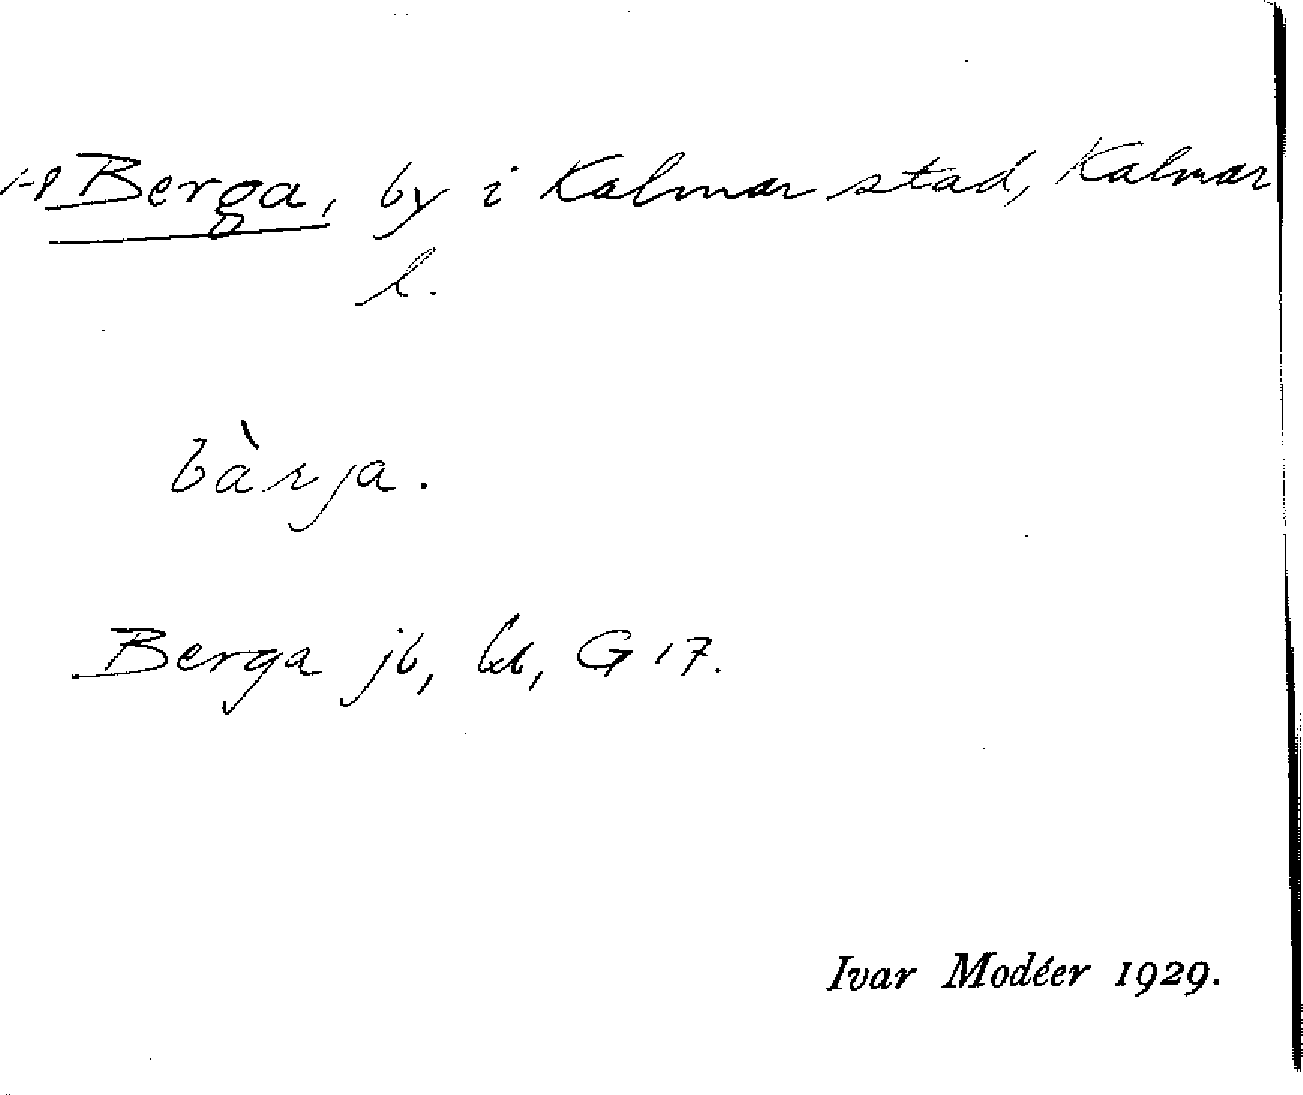 1-8 Berga, by i Kalmar stad, Kalmar
l.
bàrja.
Berga jb, kb, G 17.
Ivar Modéer 1929.